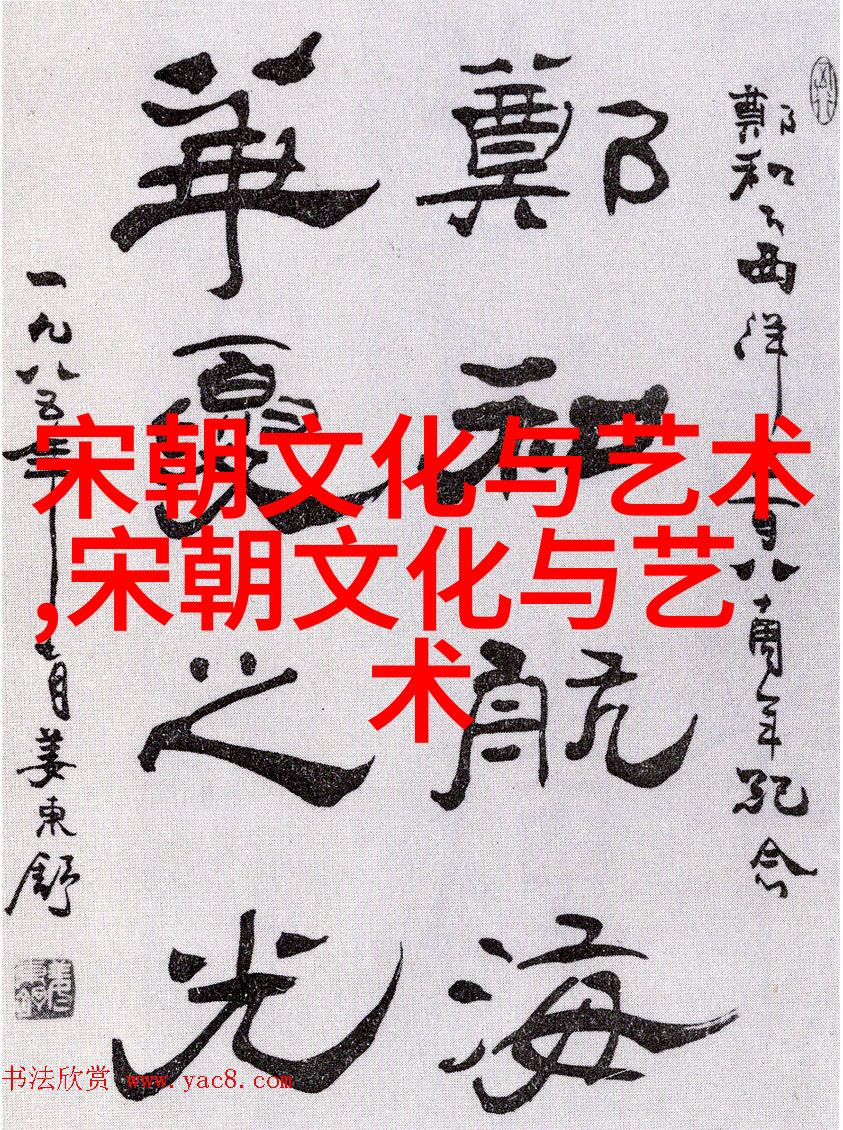 鄭和下西洋百八十周年紀念
鄭和航海
華夏之光
一九八五年月姜東舒
宋朝文化与艺术
,宋朝文化与艺
术
书法欣赏 www.yac8.com